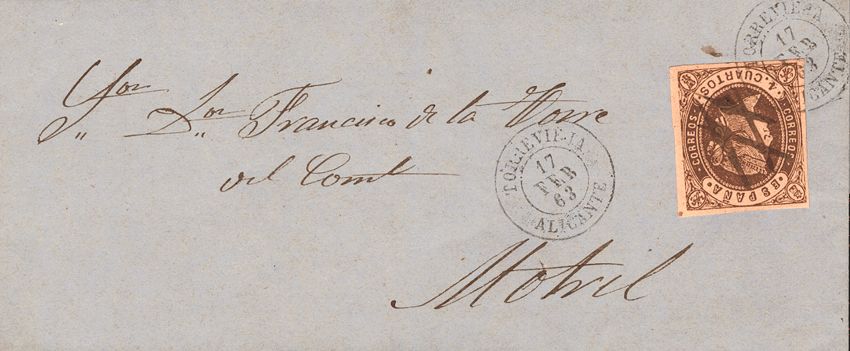 Sor Dn Francisco de la Torre
del Comº
Motril
TORREVIEJA
17
FEB
63
ALICANTE
TORREVIEJA
17
FEB
63
ALICANTE
4 CUARTOS
CORREOS
CORREOS
ESPAÑA